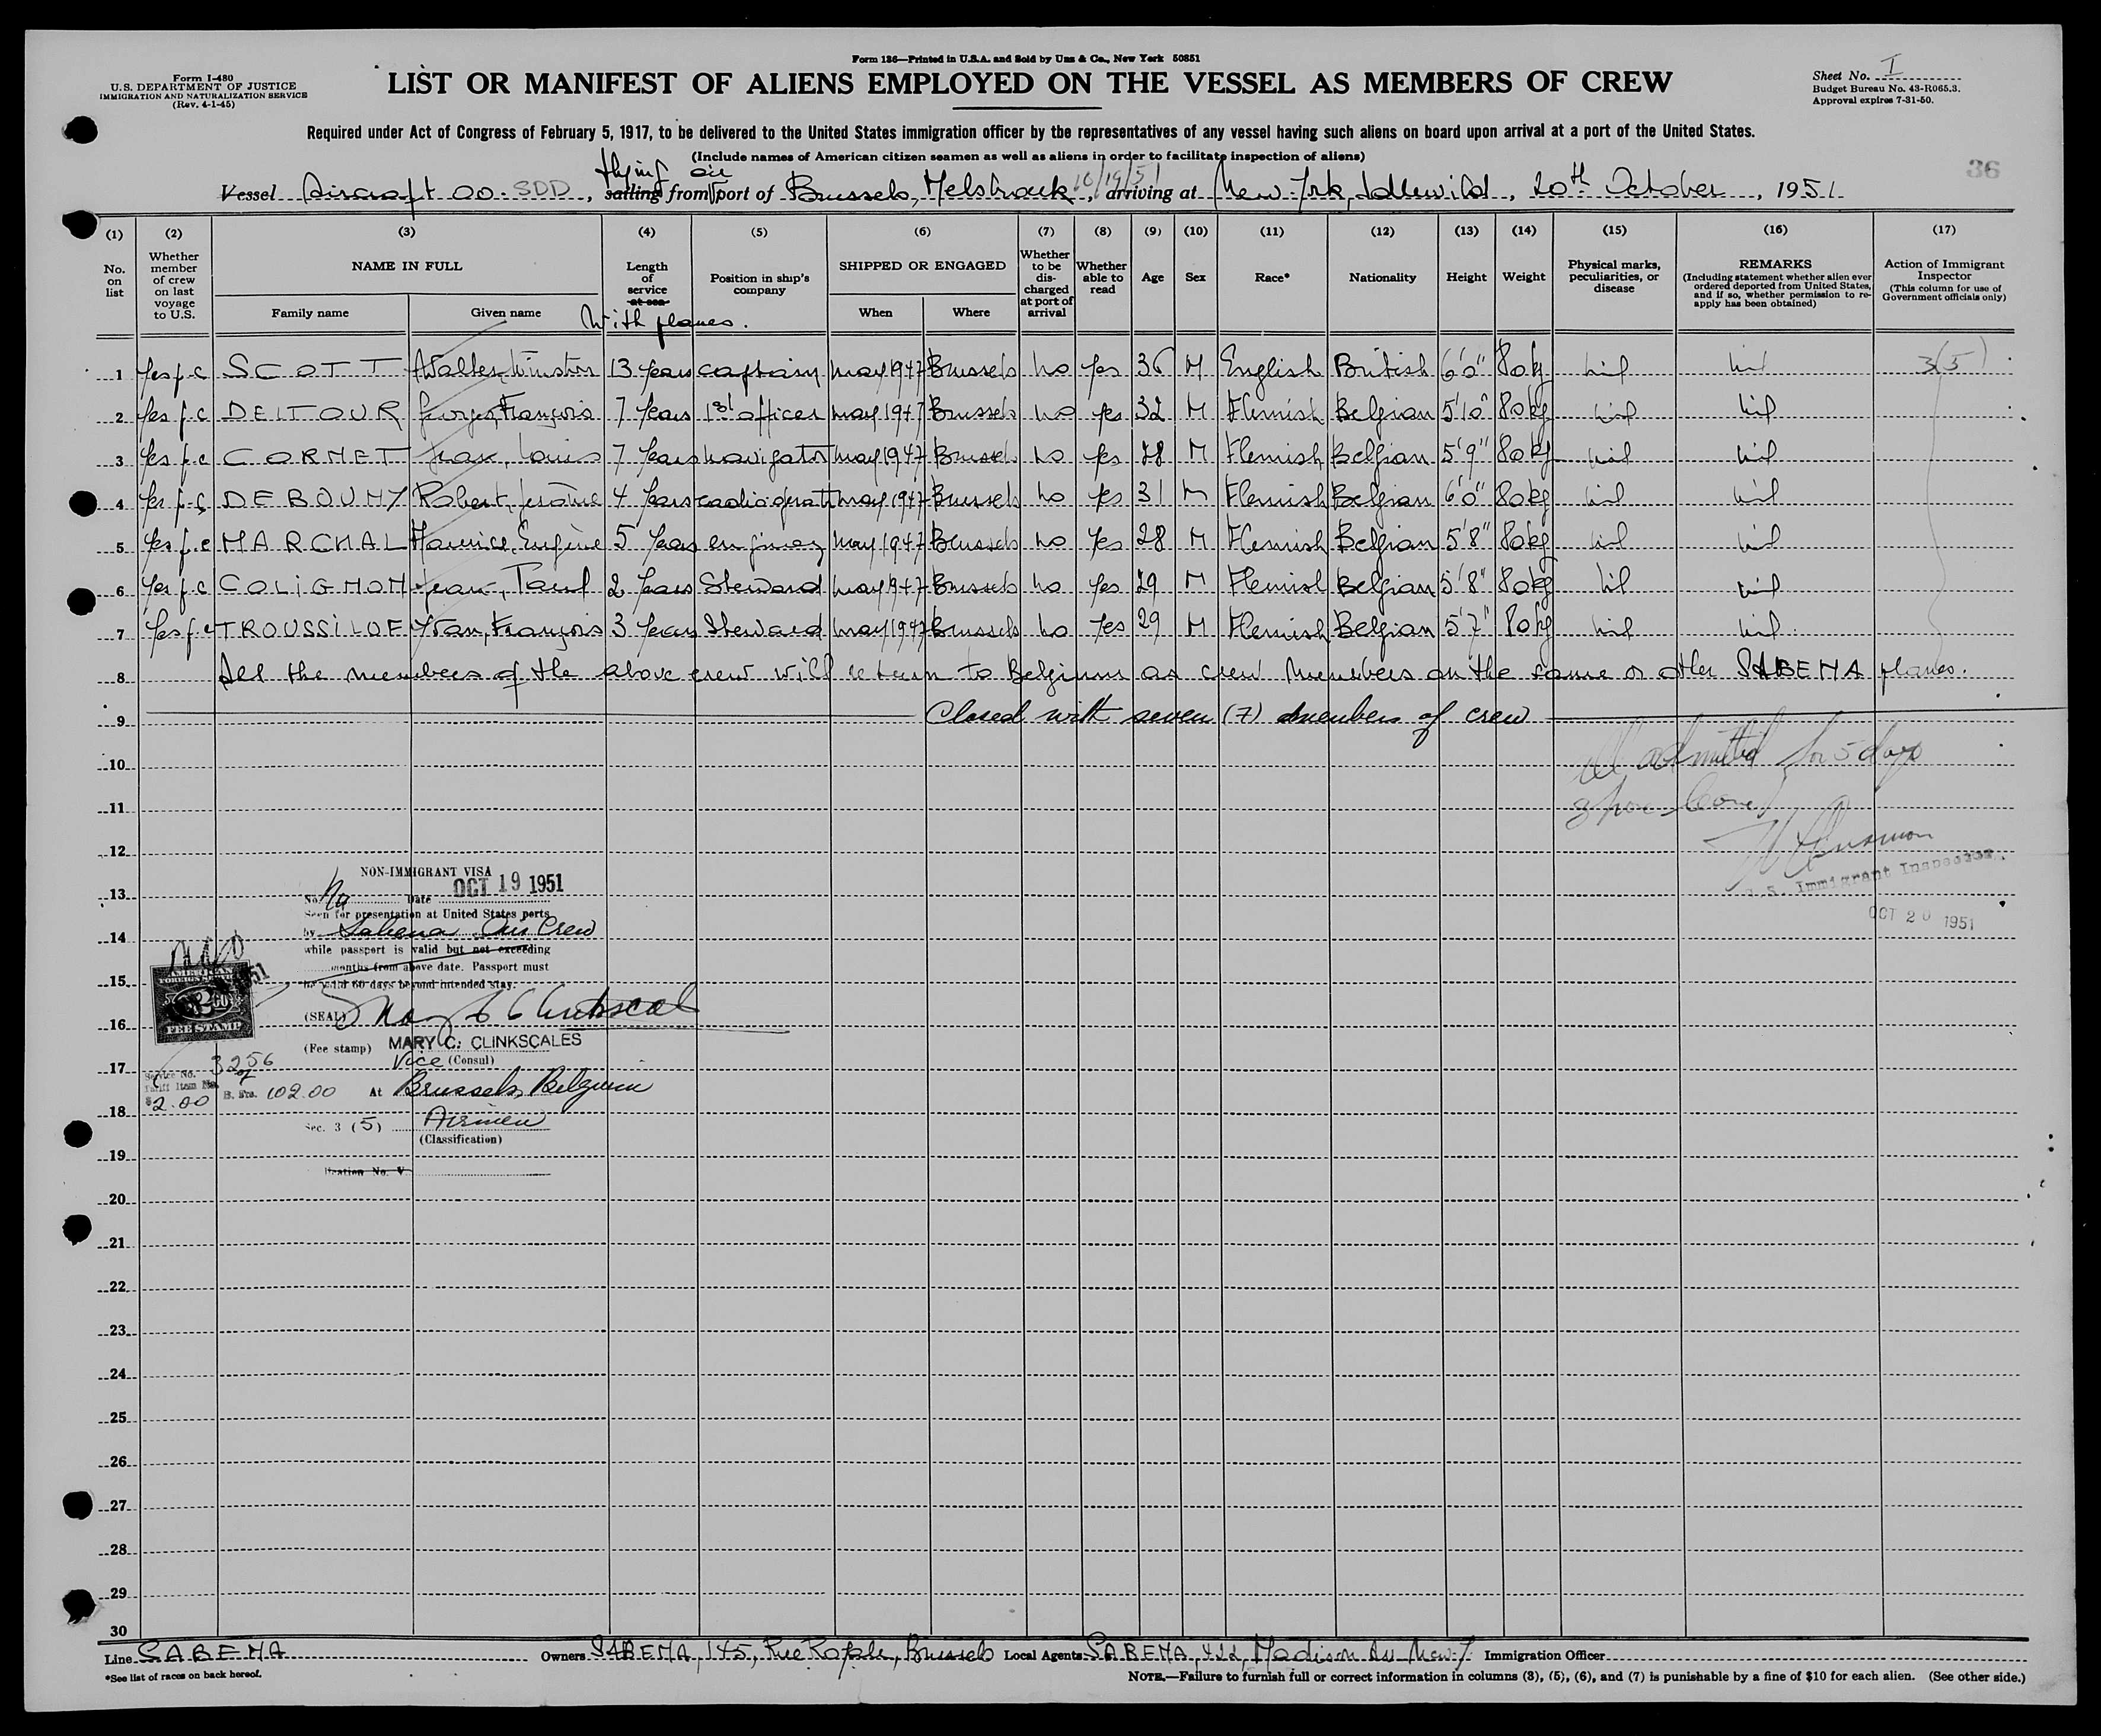 Form 136—Printed in U.S.A. and Sold by Unz & Co., New York 50851
Form I-480
U.S. DEPARTMENT OF JUSTICE
IMMIGRATION AND NATURALIZATION SERVICE
(Rev. 4-1-45)
LIST OR MANIFEST OF ALIENS EMPLOYED ON THE VESSEL AS MEMBERS OF CREW
Sheet No. I
Budget Bureau No. 43-R065.3.
Approval expires 7-31-50.
Required under Act of Congress of February 5, 1917, to be delivered to the United States immigration officer by the representatives of any vessel having such aliens on board upon arrival at a port of the United States.
(Include names of American citizen seamen as well as aliens in order to facilitate inspection of aliens)
36
flying air 10/19/51
Vessel Aircraft OO-SDD, sailing from port of Brussels, Melsbroek, arriving at New-York, Idlewild, 20th October, 1951
(1) (2) (3) (4) (5) (6) (7) (8) (9) (10) (11) (12) (13) (14) (15) (16) (17)
No. on list
Whether member of crew on last voyage to U.S.
NAME IN FULL
Family name
Given name
Length of service at sea
With planes.
Position in ship's company
SHIPPED OR ENGAGED
When
Where
Whether to be discharged at port of arrival
Whether able to read
Age
Sex
Race*
Nationality
Height
Weight
Physical marks, peculiarities, or disease
REMARKS
(Including statement whether alien ever ordered deported from United States, and if so, whether permission to re-apply has been obtained)
Action of Immigrant Inspector
(This column for use of Government officials only)
1 Yes f.c SCOTT Walter, Winston 13 Years captain May 1947 Brussels no Yes 36 M English British 6'0" 80kg nil nil 3(5)
2 Yes f.c DELTOUR Georges, François 7 Years 1st officer May 1947 Brussels no Yes 32 M Flemish Belgian 5'10" 80kg nil nil
3 Yes f.c CORNET Jean, Louis 7 Years navigator May 1947 Brussels no Yes 28 M Flemish Belgian 5'9" 80kg nil nil
4 Yes f.c DEBOUNY Robert, Jérôme 4 Years radio-operator May 1947 Brussels no Yes 31 M Flemish Belgian 6'0" 80kg nil nil
5 Yes f.c MARCHAL Maurice, Eugène 5 Years engineer May 1947 Brussels no Yes 28 M Flemish Belgian 5'8" 80kg nil nil
6 Yes f.c COLIGNON Jean, Paul 2 Years Steward May 1947 Brussels no Yes 29 M Flemish Belgian 5'8" 80kg nil nil
7 Yes f.c TROUSSILOE François 3 Years Steward May 1947 Brussels no Yes 29 M Flemish Belgian 5'7" 80kg nil nil
8 All the members of the above crew will return to Belgium as crew members on the same or other SABENA planes.
9 Closed with seven (7) members of crew
10
All admitted for 5 days
11
shore leave
12
U.S. Immigrant Inspector
OCT 20 1951
NON-IMMIGRANT VISA
13
No. Date OCT 19 1951
Seen for presentation at United States ports
14
by Sabena Air Crew
while passport is valid but not exceeding
months from above date. Passport must
15
be valid 60 days beyond intended stay.
AMERICAN
FOREIGN SERVICE
$2.00
FEE STAMP
16
(SEAL) Mary C Clinkscales
(Fee stamp) MARY C. CLINKSCALES
17
Vice (Consul)
Service No. 3256
Tariff Item No. 7
$2.00 B. Frs. 102.00 At Brussels, Belgium
18
Sec. 3 (5) Airmen
(Classification)
19
20
21
22
23
24
25
26
27
28
29
30
Line SABENA Owners SABENA, 145, Rue Royale, Brussels Local Agents SABENA, 422, Madison Av. New-Y. Immigration Officer
*See list of races on back hereof.
NOTE.—Failure to furnish full or correct information in columns (3), (5), (6), and (7) is punishable by a fine of $10 for each alien. (See other side.)